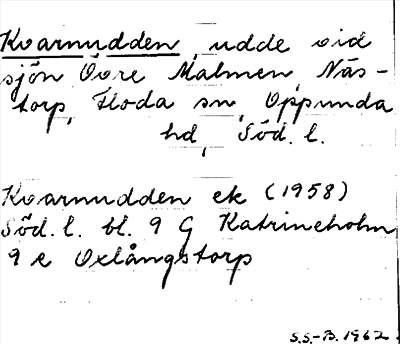 Kvarnudden, udde vid
sjön Övre Malmen, Näs-
torp, Floda sn, Oppunda
hd, Söd. l.
Kvarnudden ek (1958)
Söd. l. bl. 9 G Katrineholm
9 e Oxlångstorp
S.S.-B. 1962